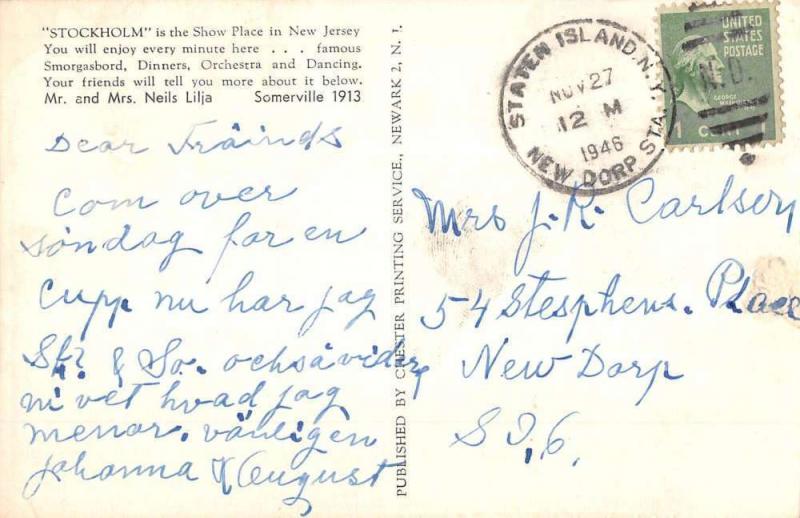 "STOCKHOLM" is the Show Place in New Jersey
You will enjoy every minute here . . . famous
Smorgasbord, Dinners, Orchestra and Dancing.
Your friends will tell you more about it below.
Mr. and Mrs. Neils Lilja Somerville 1913
Dear Frainds
Com over
söndag for en
cupp nu har jag
& So. ochsåvidare
ni vet hvad jag
menar. vänligen
Johanna & August
PUBLISHED BY CHESTER PRINTING SERVICE., NEWARK 2, N. J.
STATEN ISLAND, N.Y.
NOV 27
12 M
1946
NEW DORP STA.
UNITED
STATES
POSTAGE
N.D.
GEORGE
1 CENT
Mrs J. R. Carlson
54 Stesphens. Place
New Dorp
S I, 6.